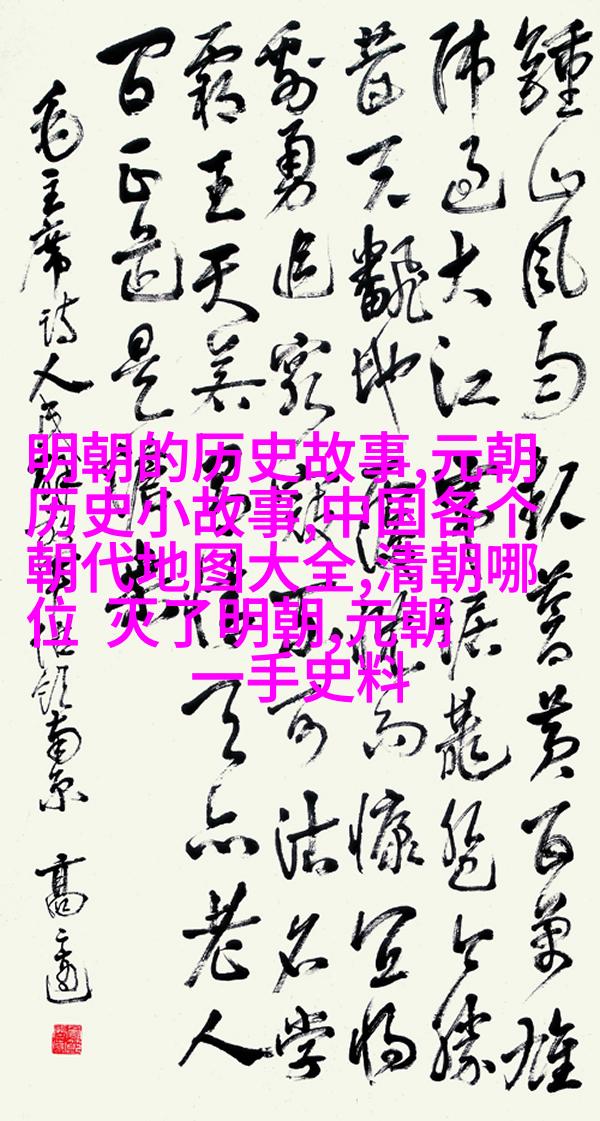 鍾山風雨起蒼黃百萬雄
师過大江虎踞龍盤今勝
昔天翻地覆慨而慷宜将
剩勇追窮寇不可沽名学
霸王天若有情天亦老人
间正道是滄桑
毛主席诗人民解放军占领南京 高
明朝的历史故事,元朝
历史小故事,中国各个
朝代地图大全,清朝哪
位 灭了明朝,元朝
一手史料